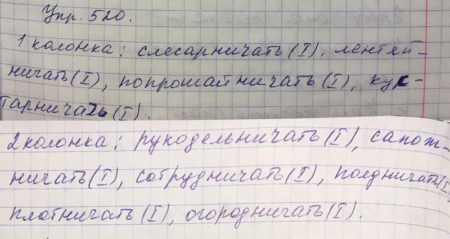 Упр. 520.
1 колонка: слесарничать (I), лентяй-
ничать (I), попрошайничать (I), кус-
тарничать (I).
2 колонка: рукодельничать (I), сапож-
ничать (I), сотрудничать (I), полдничать (I)
плотничать (I), огородничать (I).